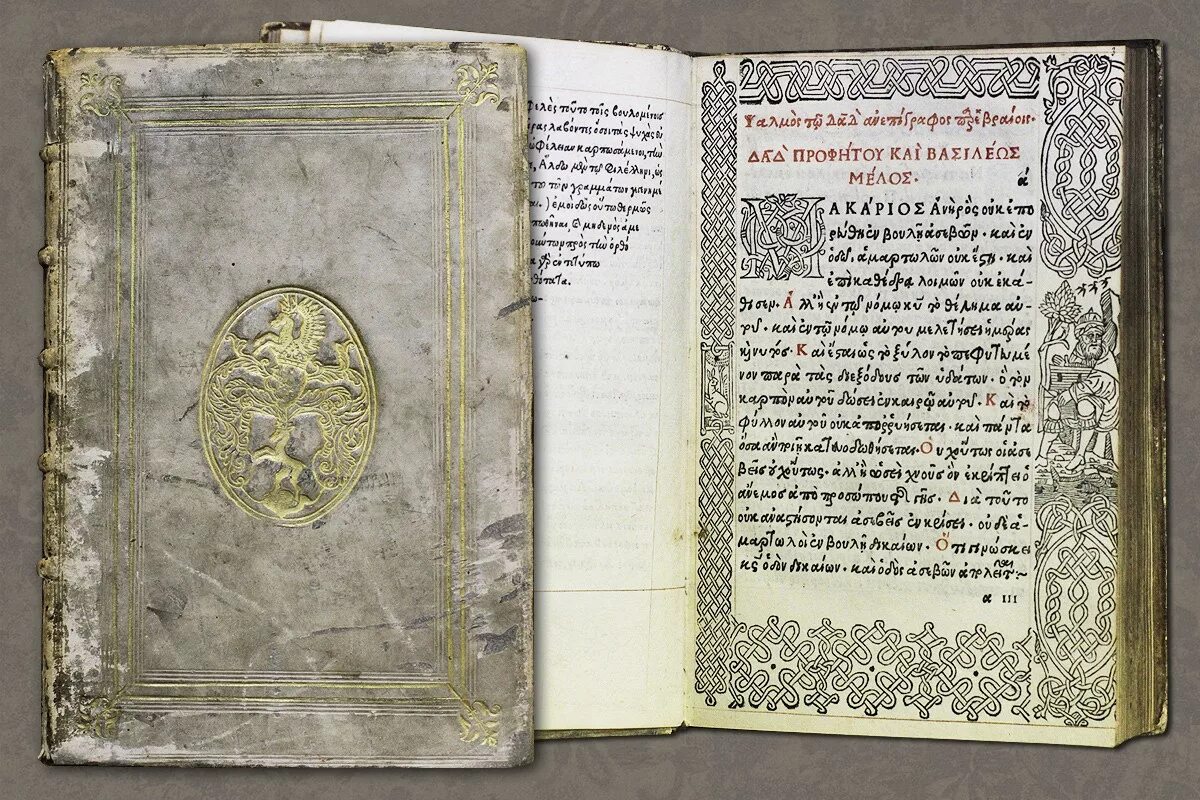 φελὲς τοῦτο τοῖς βουλομένοις
λαβόντες ὅσοι τὰς ψυχὰς
καρπωσάμενοι,
Ἄλδῳ μὲν τῷ φιλέλληνι, ὡς
τῶν γραμμάτων
ἐμοὶ δὲ ὡς οὕτω θερμῶς
μηδενὸς ἀμε
πρὸς
Ψαλμὸς τῷ Δαδ ἀνεπίγραφος παρ᾽ ἑβραίοις.
ΔΑΔ ΠΡΟΦΗΤΟΥ ΚΑΙ ΒΑΣΙΛΕΩΣ
ΜΕΛΟΣ.
ά
ΜΑΚΑΡΙΟΣ ἀνὴρ ὃς οὐκ ἐπο
ρεύθη ἐν βουλῇ ἀσεβῶν. καὶ ἐν
ὁδῷ ἁμαρτωλῶν οὐκ ἔστη. καὶ
ἐπὶ καθέδρᾳ λοιμῶν οὐκ ἐκά-
θισεν. Ἀλλ᾽ ἢ ἐν τῷ νόμῳ κυ τὸ θέλημα αὐ-
τοῦ. καὶ ἐν τῷ νόμῳ αὐτοῦ μελετήσει ἡμέρας
καὶ νυκτός. Καὶ ἔσται ὡς τὸ ξύλον τὸ πεφυτευμέ
νον παρὰ τὰς διεξόδους τῶν ὑδάτων. ὃ τὸν
καρπὸν αὐτοῦ δώσει ἐν καιρῷ αὐτοῦ. Καὶ τὸ
φύλλον αὐτοῦ οὐκ ἀπορρυήσεται. καὶ πάντα
ὅσα ἂν ποιῇ κατευοδωθήσεται. Οὐχ οὕτως οἱ ἀσε
βεῖς οὐχ οὕτως. ἀλλ᾽ ἢ ὡσεὶ χνοῦς ὃν ἐκρίπτει ὁ
ἄνεμος ἀπὸ προσώπου τῆς γῆς. Διὰ τοῦτο
οὐκ ἀναστήσονται ἀσεβεῖς ἐν κρίσει. οὐδὲ ἁ-
μαρτωλοὶ ἐν βουλῇ δικαίων. Ὅτι γινώσκει
κς ὁδὸν δικαίων. καὶ ὁδὸς ἀσεβῶν ἀπολεῖται
α III